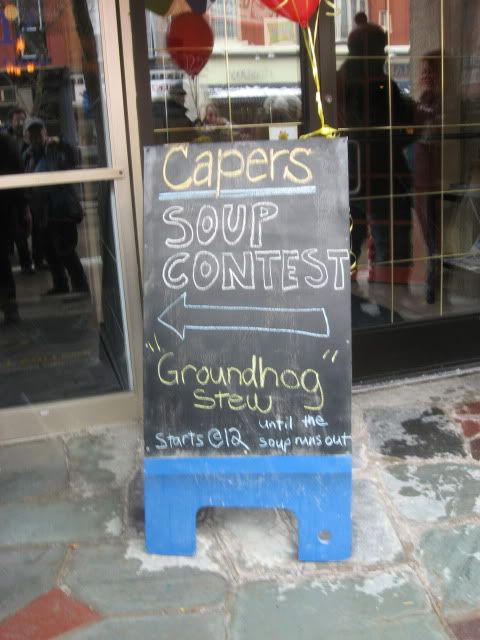 Capers
SOUP
CONTEST
"Groundhog"
Stew
Starts @12 until the
soup runs out